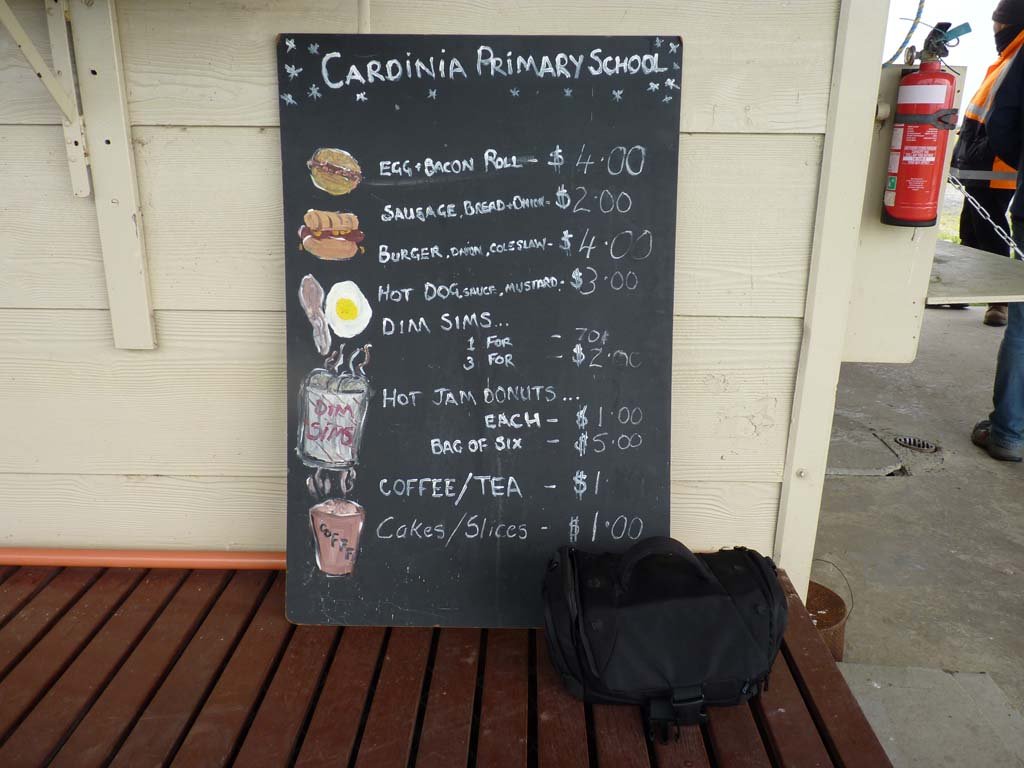 CARDINIA PRIMARY SCHOOL
EGG + BACON ROLL - $4.00
SAUSAGE, BREAD + ONION - $2.00
BURGER, ONION, COLESLAW - $4.00
HOT DOG, SAUCE, MUSTARD - $3.00
DIM SIMS...
1 FOR - 70¢
3 FOR - $2.00
DIM
SIMS
HOT JAM DONUTS...
EACH - $1.00
BAG OF SIX - $5.00
COFFEE/TEA - $1
Cakes/Slices - $1.00
COFFEE